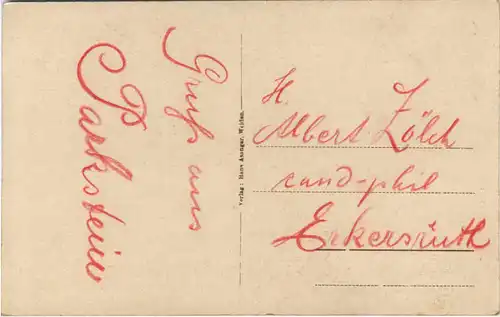 Gruß aus
Parkstein
Verlag: Hans Ansnger, Weiden.
H.
Albert Zölch
cand-phil
Erkersruth